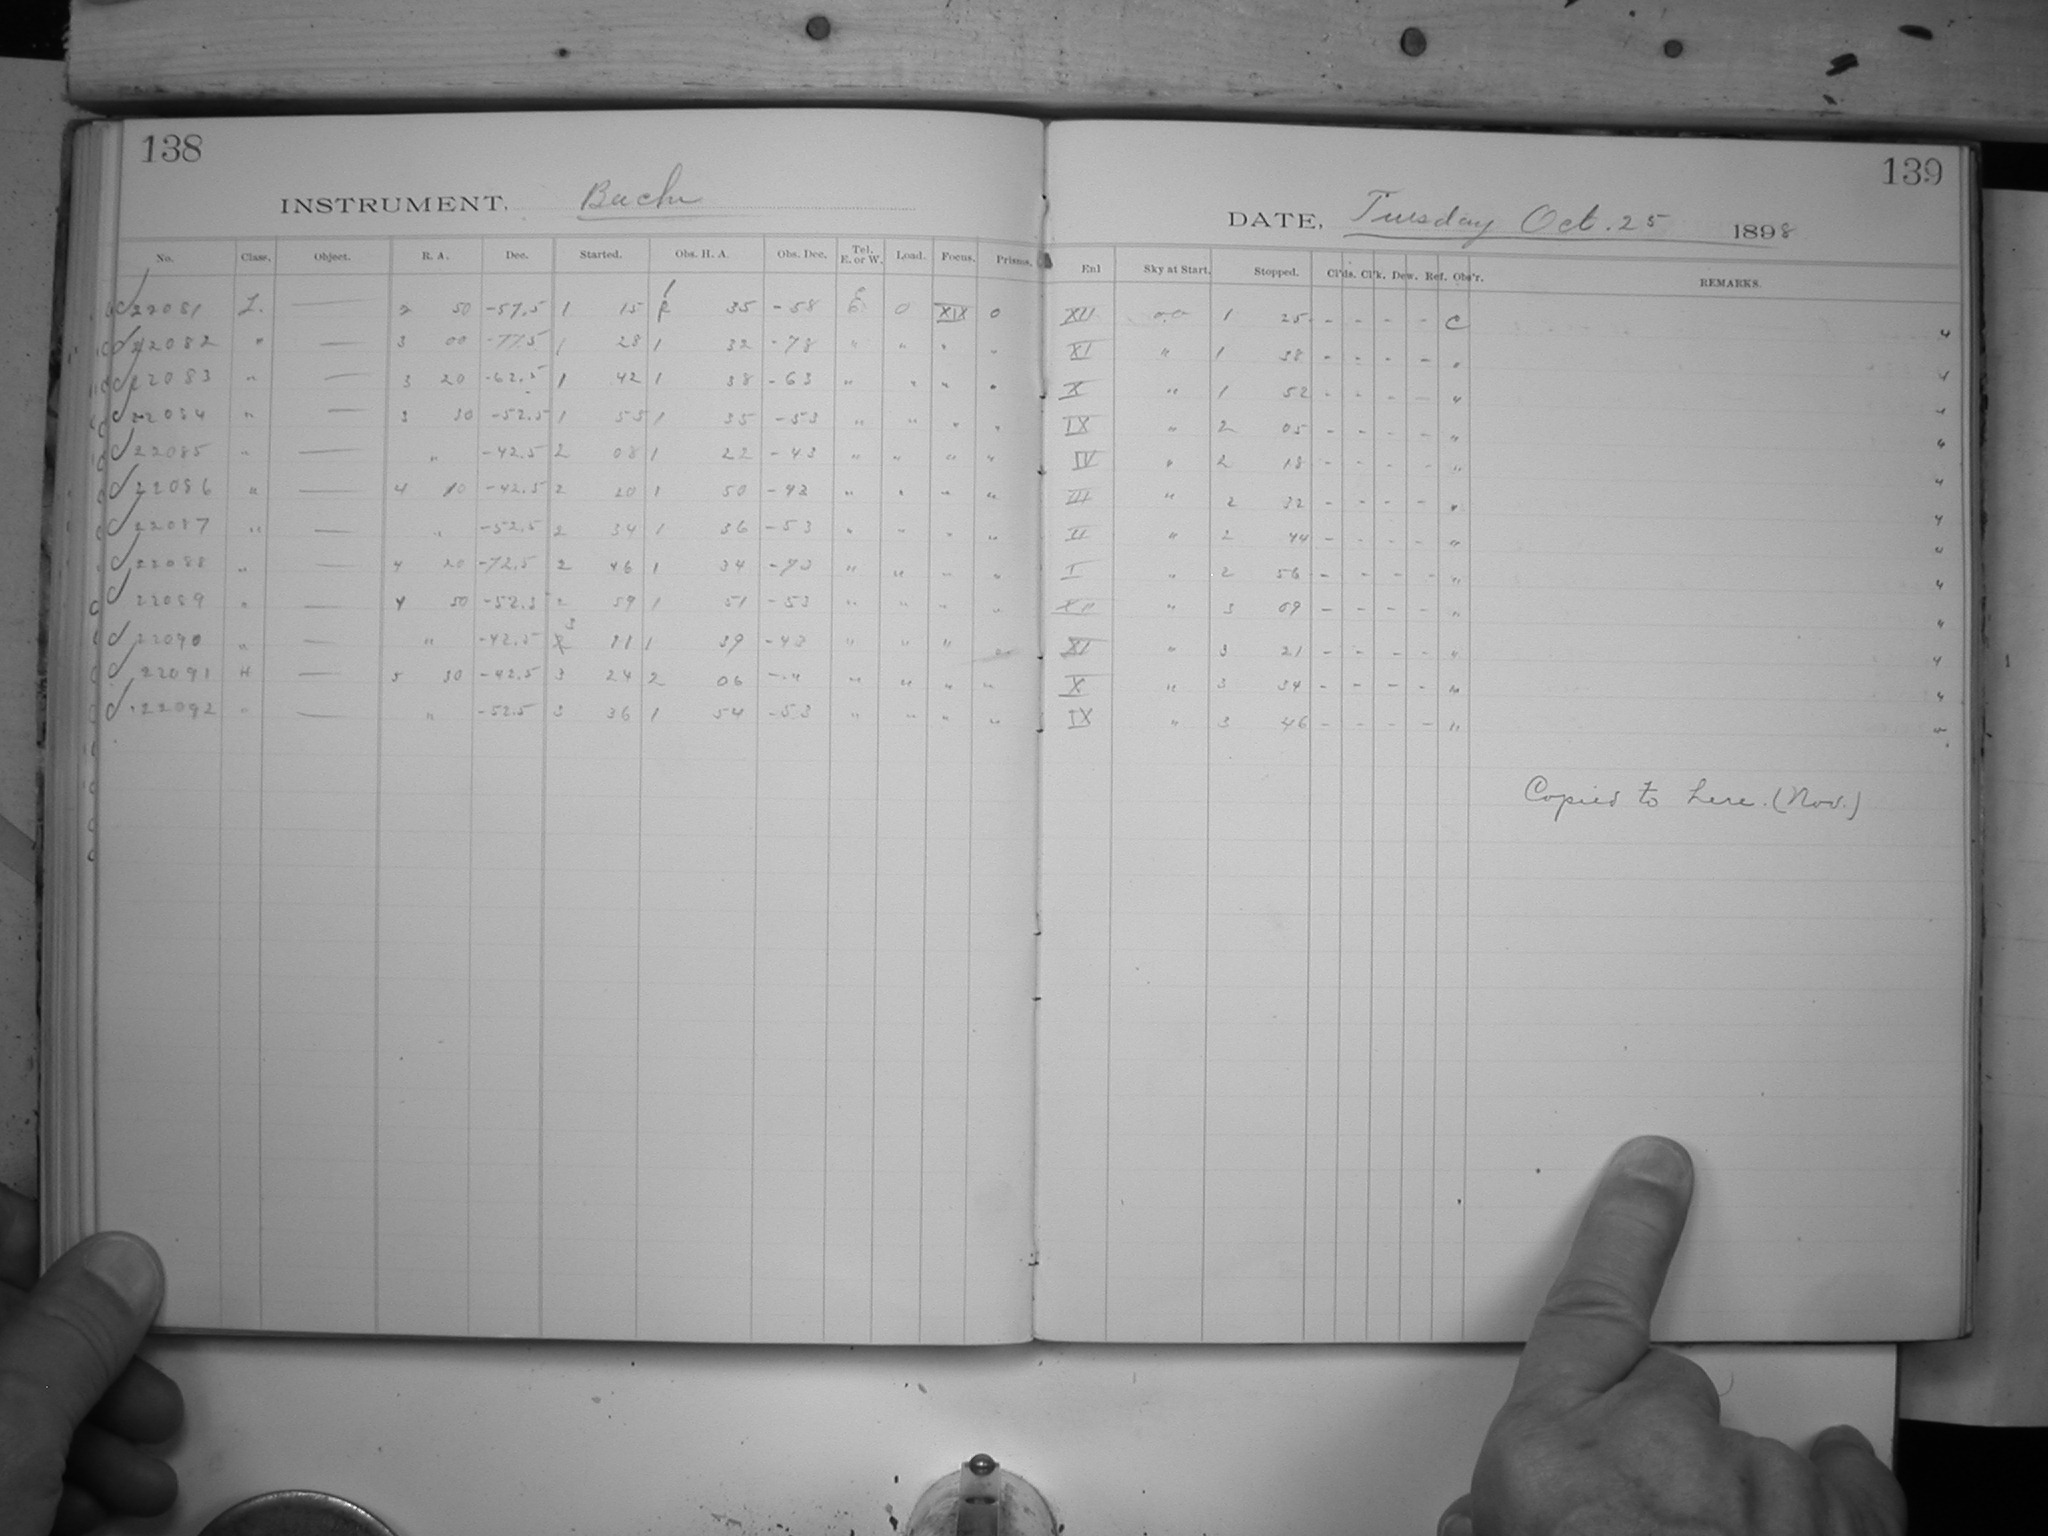 138
139
INSTRUMENT, Bache
DATE, Tuesday Oct. 25 1898
No. Class. Object. R. A. Dec. Started. Obs. H. A. Obs. Dec. Tel. E. or W. Load. Focus. Prisms. Enl Sky at Start. Stopped. Cl'ds. Cl'k. Dew. Ref. Obs'r. REMARKS.
22081 L. — 2 50 -57.5 1 15 1 35 -58 E 0 XIX 0 XII 1 25 - - - - C
22082 " — 3 00 -77.5 1 28 1 32 -78 " " " " XI " 1 38 - - - - "
22083 " — 3 20 -62.5 1 42 1 38 -63 " " " " X " 1 52 - - - - "
22084 " — 3 30 -52.5 1 55 1 35 -53 " " " " IX " 2 05 - - - - "
22085 " — " -42.5 2 08 1 22 -43 " " " " IV " 2 18 - - - - "
22086 " — 4 10 -42.5 2 20 1 50 -43 " " " " III " 2 32 - - - - "
22087 " — " -52.5 2 34 1 36 -53 " " " " II " 2 44 - - - - "
22088 " — 4 20 -72.5 2 46 1 34 -73 " " " " I " 2 56 - - - - "
22089 " — 4 50 -52.5 2 59 1 51 -53 " " " " XII " 3 09 - - - - "
22090 " — " -42.5 3 11 1 39 -43 " " " " XI " 3 21 - - - - "
22091 " — 5 30 -42.5 3 24 2 06 - " " " " " X " 3 34 - - - - "
22092 " — " -52.5 3 36 1 54 -53 " " " " IX " 3 46 - - - - "
Copied to here. (Nov.)